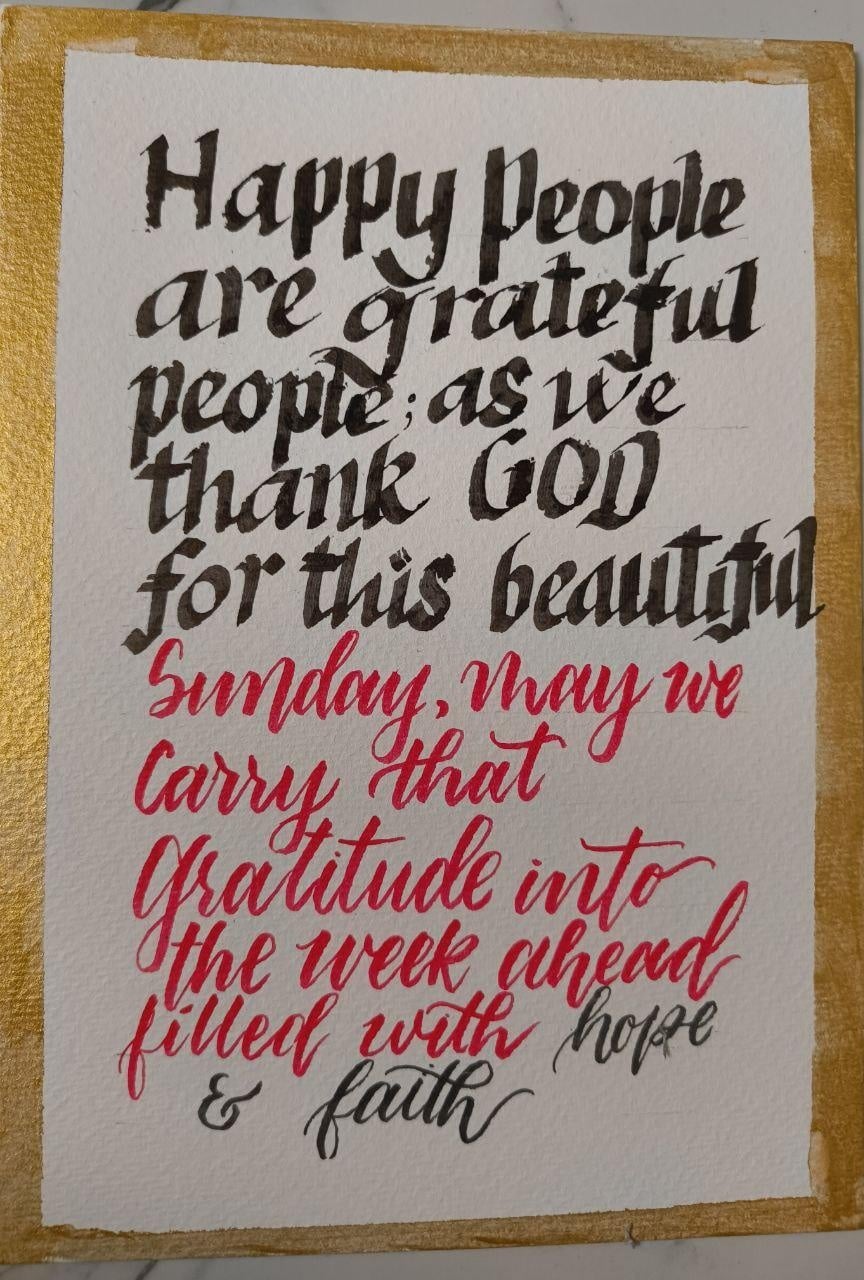 Happy People
are grateful
people; as we
thank GOD
for this beautiful
Sunday, may we
Carry that
Gratitude into
the week ahead
filled with hope
& faith